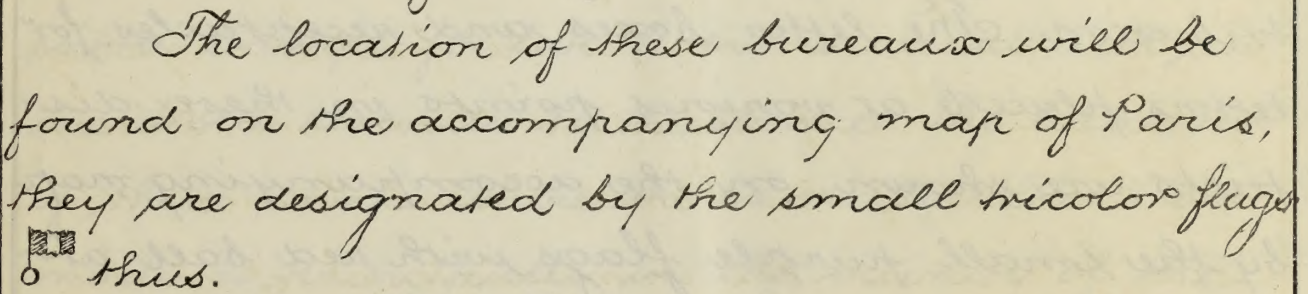 The location of these bureaux will be
found on the accompanying map of Paris,
they are designated by the small tricolor flags
thus.